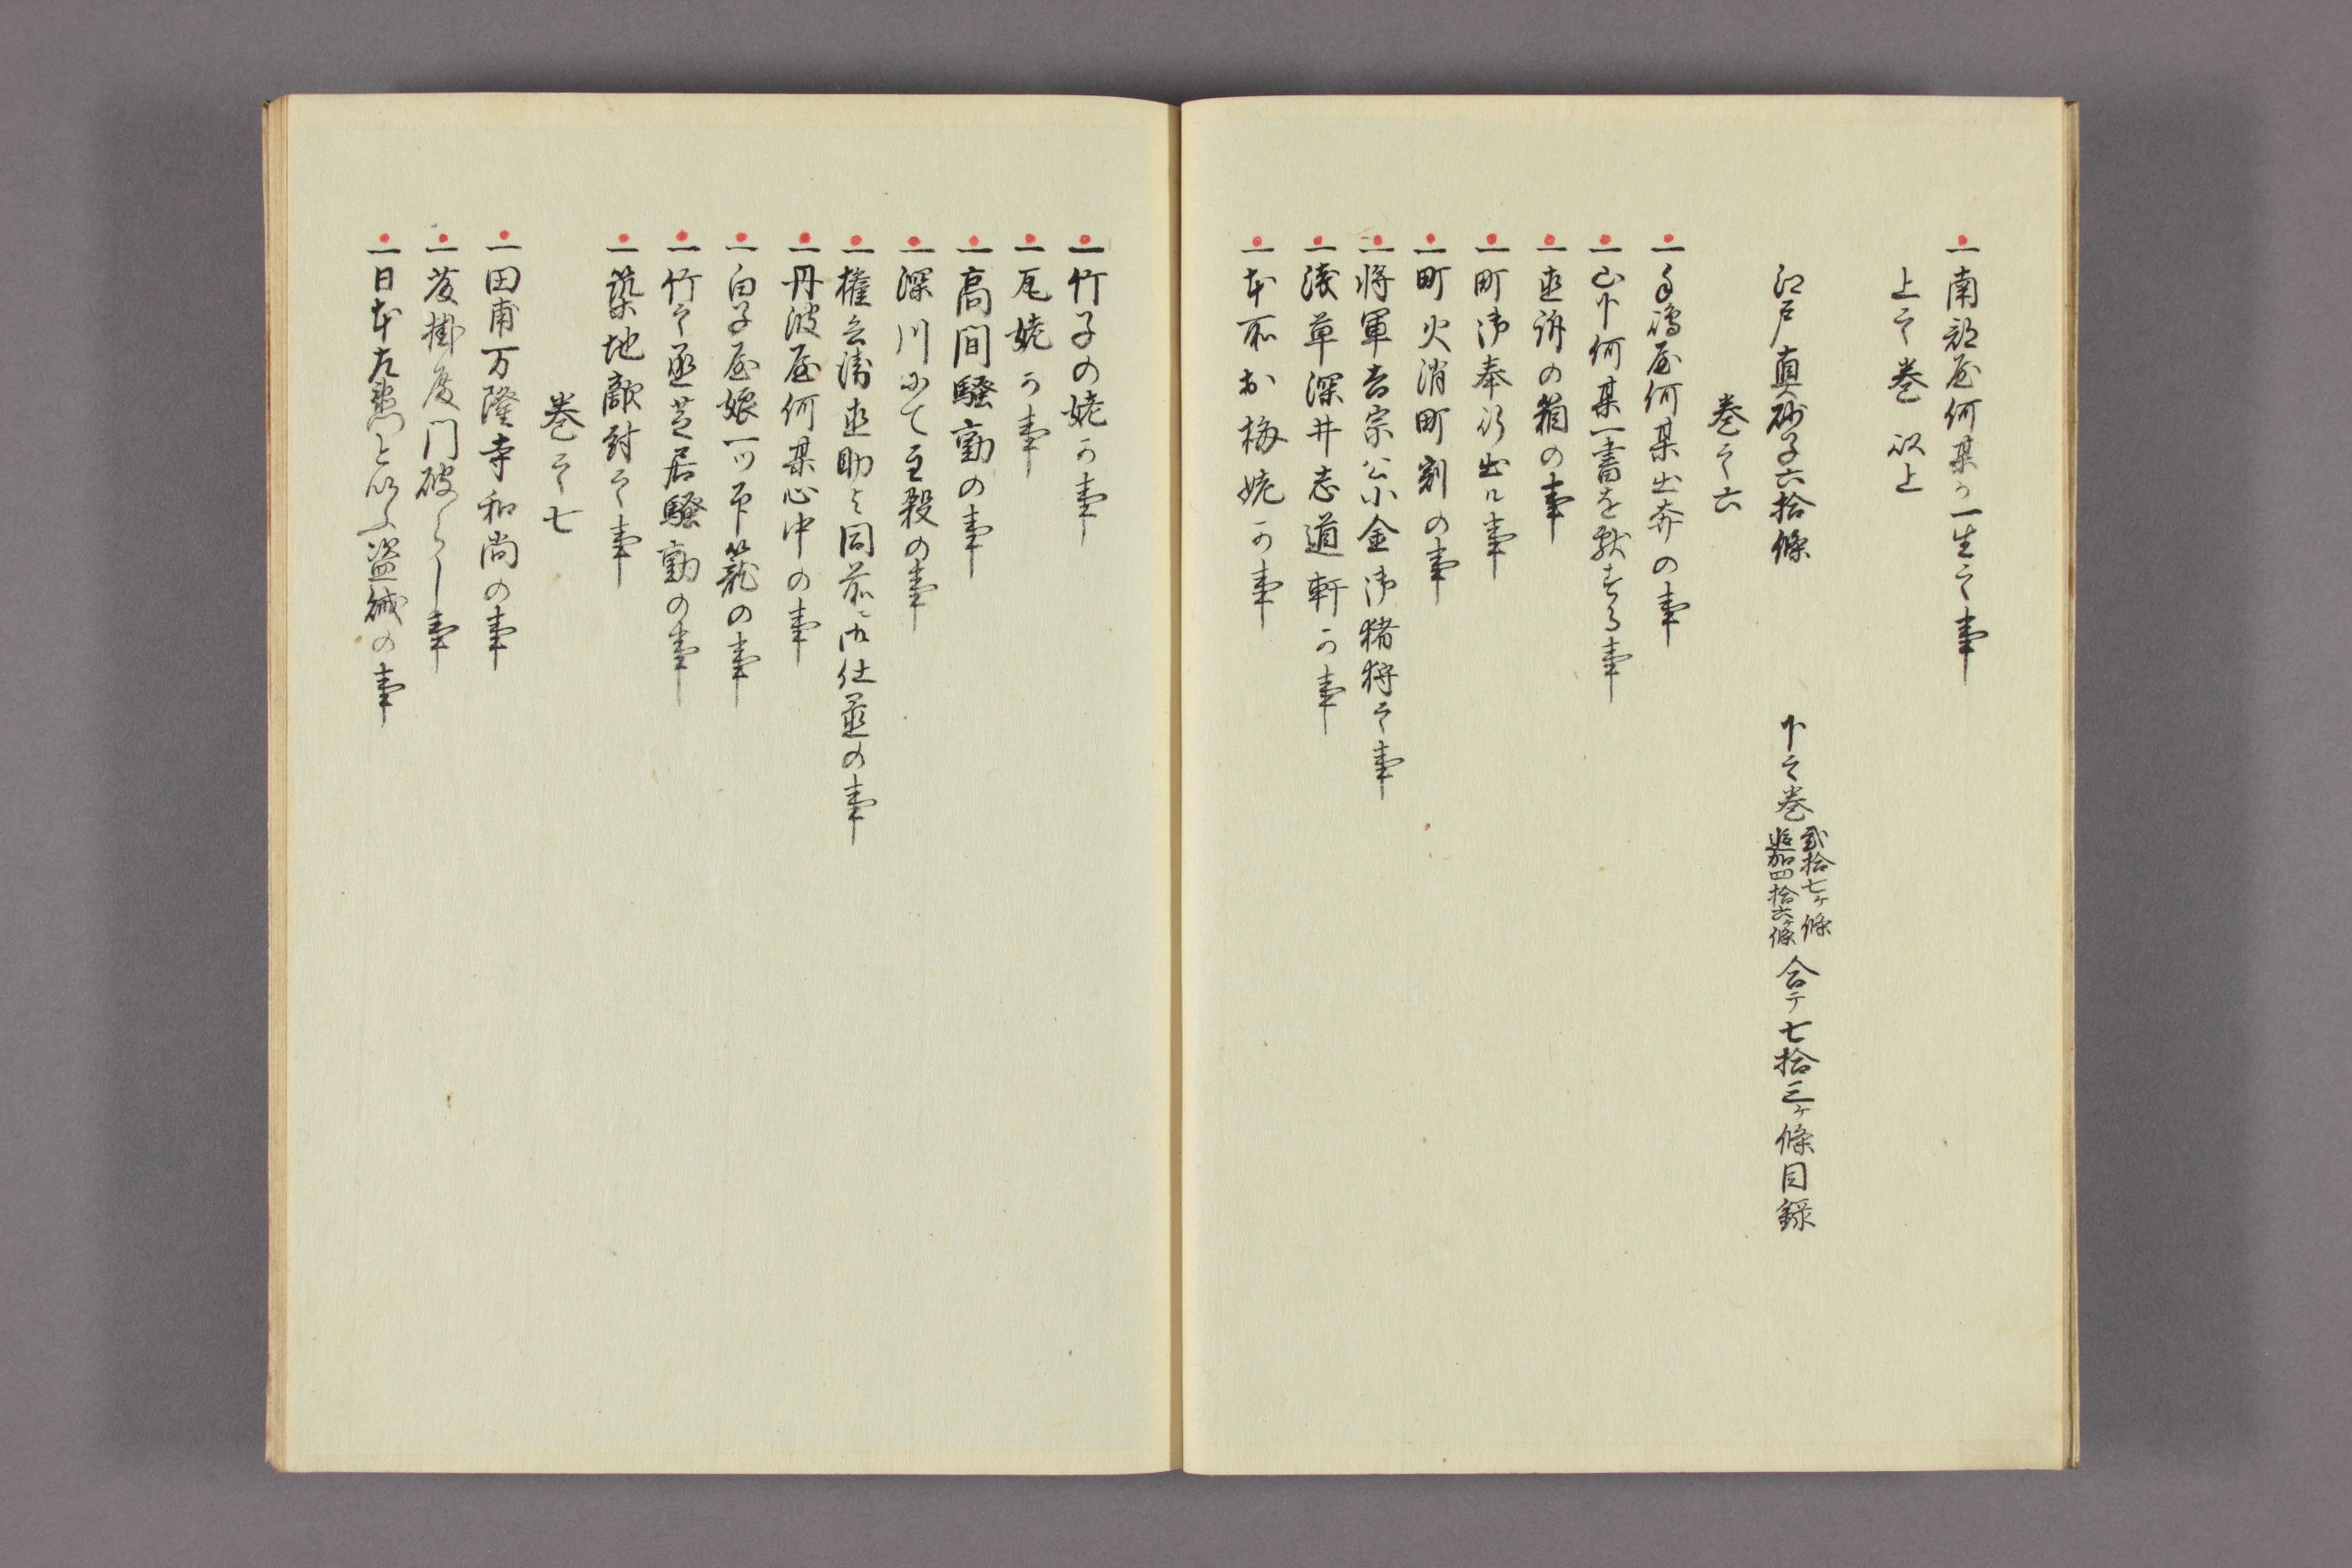 一南部屋何某か一生之事
上之巻 以上
江戸真砂子六拾條 下之巻 弐拾七ヶ條 追加四拾六ヶ條 合テ七拾三ヶ條目録
巻之六
一手嶋屋何某出奔の事
一山下何某一書を献する事
一直訴の箱の事
一町御奉行出ル事
一町火消町割の事
一将軍吉宗公小金御猪狩之事
一浅草深井志道軒か事
一本所お梅姥か事
一竹子の姥か事
一瓦姥か事
一高間騒動の事
一深川にて主殺の事
一権兵衛直助と同前ニ御仕置の事
一丹波屋何某心中の事
一白子屋娘一ツ印籠の事
一竹之丞芝居騒動の事
一築地敵討之事
巻之七
一田甫万隆寺和尚の事
一友掛屋門破らし事
一日本左衛門と以ふ盗賊の事